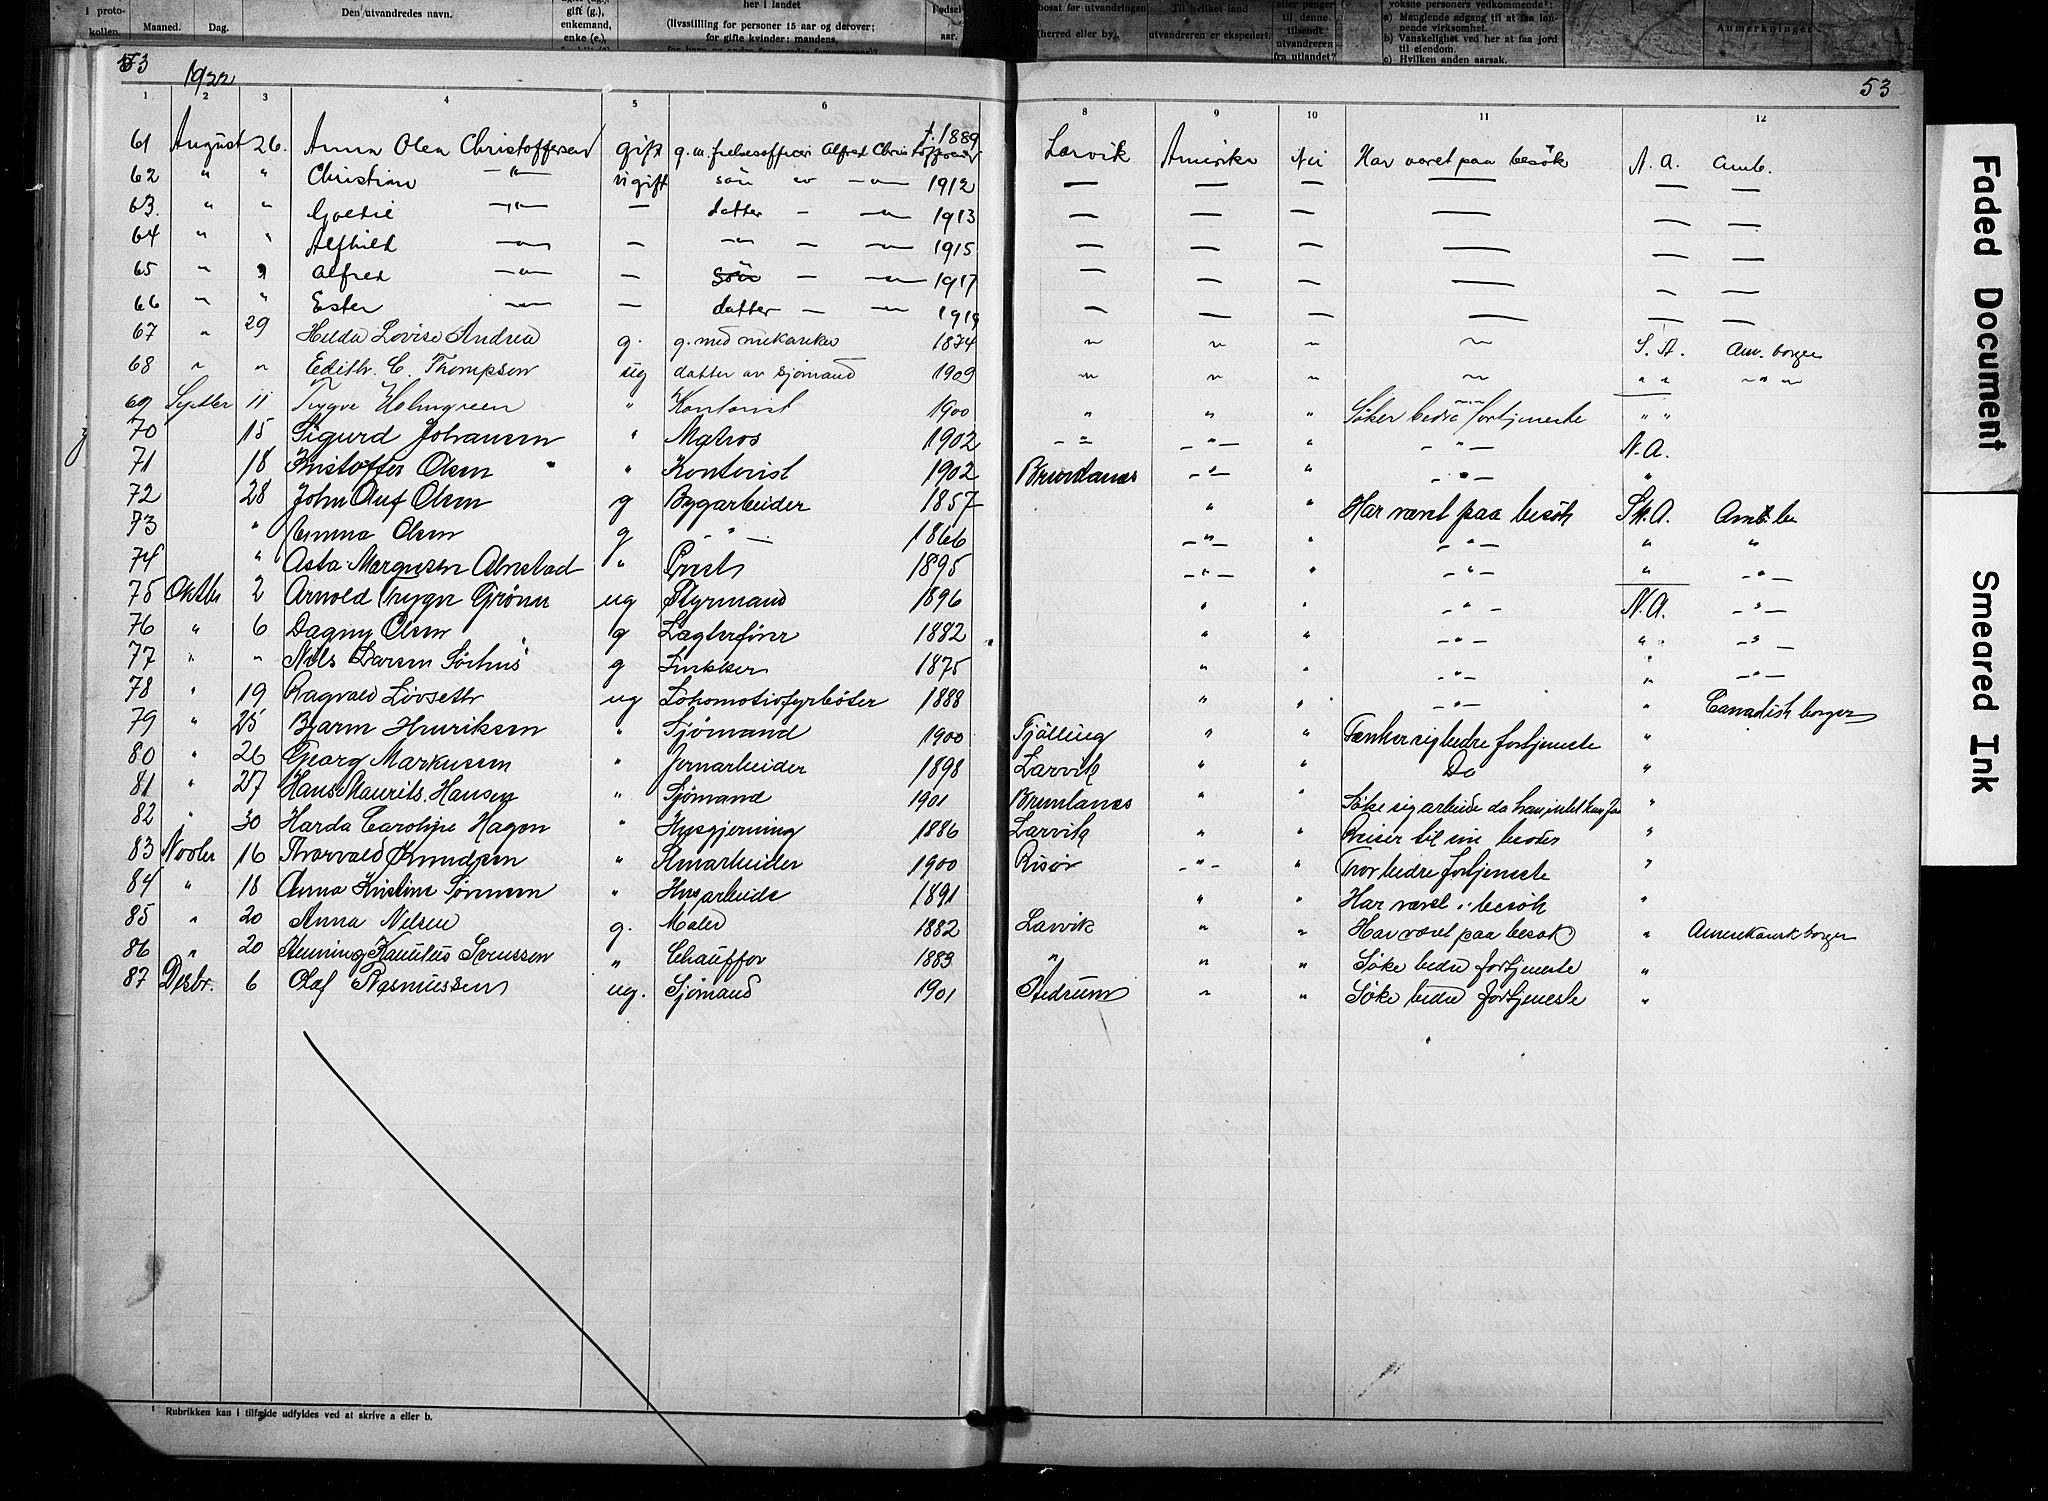 I proto-
kollen. Maaned. Dag. Den utvandredes navn. gift (g.), enkemand, enke (e.), her i landet (livsstilling for personer 15 aar og derover; for gifte kvinder: mandens, Fødsels- aar. bosat før utvandringen (herred eller by). Til hvilket land utvandreren er ekspedert. eller penger til denne tilsendt utvandreren fra utlandet? voksne personers vedkommende: a) Manglende adgang til at faa lønnende virksomhet. b) Vanskelighet ved her at faa jord til eiendom. c) Hvilken anden aarsak. Anmerkninger
53 1922 53
1 2 3 4 5 6 8 9 10 11 12
61 August 26. Anna Olea Christoffersen gift g. m. frelsesofficer Alfred Christoffersen f. 1889 Larvik Amerika Nei Har været paa besök N. A. Amb.
62 " " Christian —"— ugift sön av —"— 1912 — — — — — —
63. " " —"— — datter — —"— 1913 — — — — — —
64 " " Alfhild —"— — —"— — —"— 1915 — — — — — —
65 " " Alfred —"— — sön — —"— 1917 — — — — — —
66 " " Ester —"— — datter — —"— 1919 — — — — — —
67 " 29 Hilda Lovise Andrea g. g. med mekaniker 1874 " " " " S. A. Am. borger
68 " " Edith. C. Thompson ug datter av sjömand 1909 " " " " " " " " "
69 Septbr 11 Trygve Holmgreen " Kontorist 1900 " " " Söker bedre fortjeneste " "
70 15 Sigurd Johansen " Matros 1902 —"— —"— " —"— N. A.
71 18 Kristoffer Olsen " Kontorist 1902 Brunlanes —"— " —"— "
72 28 John Oluf Olsen g Bygarbeider 1857 " " Har været paa besök Sk. A.
73 " Emma Olsen g —"— 1866 —"— " —"— " "
74 " Asta Almstad " 1895 —"— " —"— " —"—
75 Oktbr 2 Arnold Trygve Grönn ug Styrmand 1896 " " —"— N. A. —"—
76 " 6 Dagny Olsen g 1882 " " —"— " —"—
77 " " Nils Larsen g Snekker 1875 " " —"— " —"—
78 " 19 Ragvald Lövseth ug Lokomotivfyrböter 1888 " " —"— " Canadisk borger
79 " 25 Bjarne Henriksen " Sjömand 1900 Tjölling " " Tænker sig bedre fortjeneste "
80 " 26 Georg Markussen " Jernarbeider 1898 Larvik " " Do "
81 " 27 Hans Maurits. Hansen " Sjömand 1901 Brunlanes " " Söke sig arbeide da han intet kan faa "
82 " 30 Harda Caroline Hagen " Husgjerning 1886 Larvik " " Reiser til sin broder "
83 Novbr 16 Thorvald Knudsen " 1900 Risör —"— " Tror bedre fortjeneste "
84 " 18 Anna Kristine Sörensen " Husarbeide 1891 " " Har været i besök "
85 " 20 Anna Nilsen g. Maler 1882 Larvik " " Har været paa besök " Amerikansk borger
86 " 20 Svensson " Chaufför 1883 " " " Söke bedre fortjeneste "
87 Desbr. 6 Olaf Rasmussen ug. Sjömand 1901 Hedrum " " Söke bedre fortjeneste "
¹ Rubrikken kan i tilfælde udfyldes ved at skrive a eller b.
Faded Document
Smeared Ink